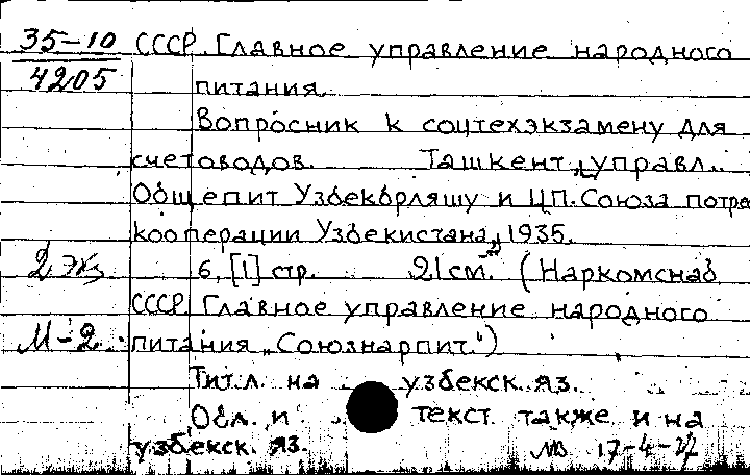 35-10 СССР. Главное управление народного
4205 питания.
Вопросник к соцтехэкзамену для
счетоводов. Ташкент, "управл.
Общепит Узбекбрляшу и ЦП. Союза потре
кооперации Узбекистана", 1935.
2 экз. 6, [1] стр. 21 см. (Наркомснаб
СССР. Главное управление народного
М-2 питания "Союзнарпит.")
Тит. л. на узбекск. яз.
Обл. и текст также и на
узбекск. яз. 17-4-